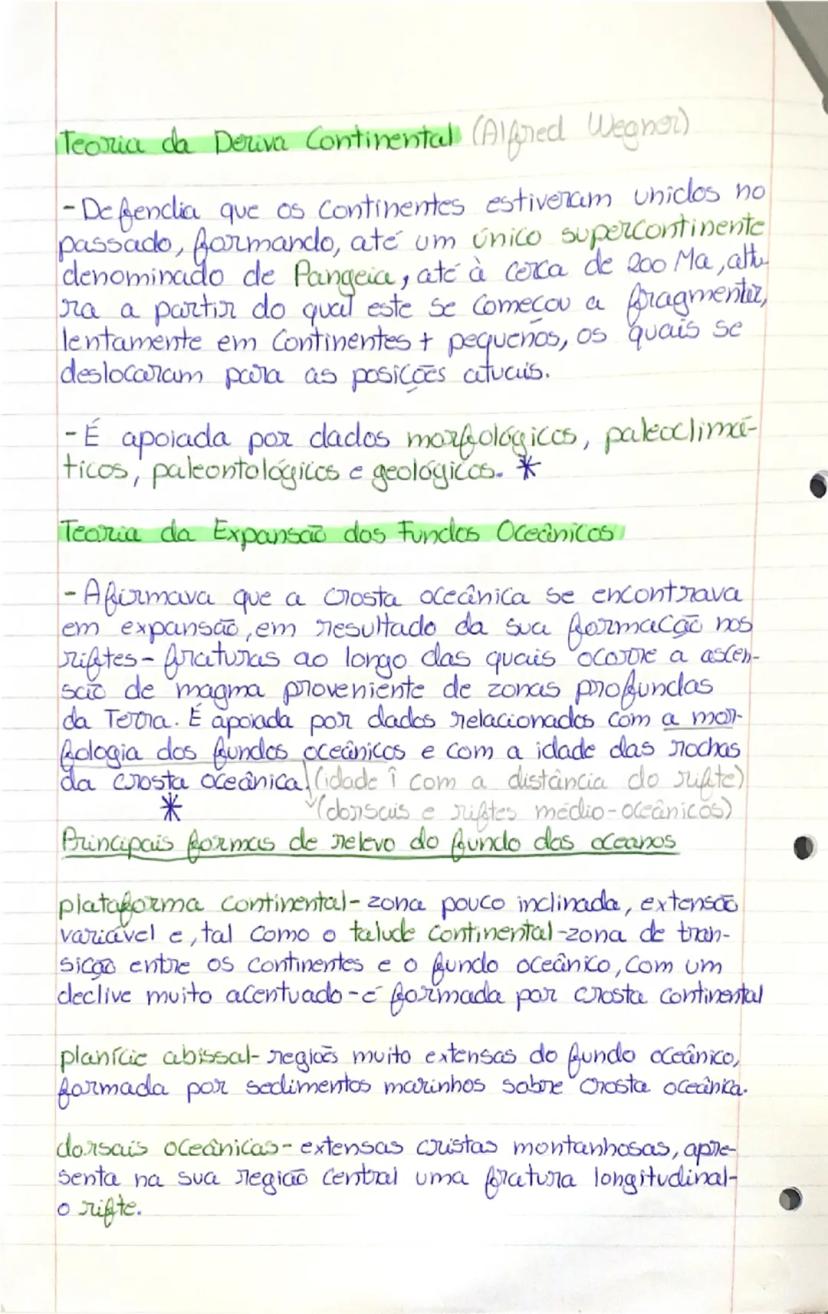 Teoria da Deriva Continental (Alfred Wegner)
- Defendia que os continentes estiveram unidos no
passado, formando, até um único supercontinente
denominado de Pangeia, até à cerca de 200 Ma, altu-
ra a partir do qual este se começou a fragmentar,
lentamente em continentes + pequenos, os quais se
deslocaram para as posições atuais.
- É apoiada por dados morfológicos, paleoclimá-
ticos, paleontológicos e geológicos. *
Teoria da Expansão dos Fundos Oceânicos
- Afirmava que a crosta oceânica se encontrava
em expansão, em resultado da sua formação nos
riftes - fraturas ao longo das quais ocorre a ascen-
são de magma proveniente de zonas profundas
da Terra. É apoiada por dados relacionados com a mor-
fologia dos fundos oceânicos e com a idade das rochas
da crosta oceânica. (idade ↑ com a distância do rifte)
* (dorsais e riftes médio-oceânicos)
Principais formas de relevo do fundo dos oceanos
plataforma continental - zona pouco inclinada, extensão
variável e, tal como o talude continental - zona de tran-
sição entre os continentes e o fundo oceânico, com um
declive muito acentuado - é formada por crosta continental
planície abissal - regiões muito extensas do fundo oceânico,
formada por sedimentos marinhos sobre crosta oceânica.
dorsais oceânicas - extensas cristas montanhosas, apre-
senta na sua região central uma fratura longitudinal -
o rifte.